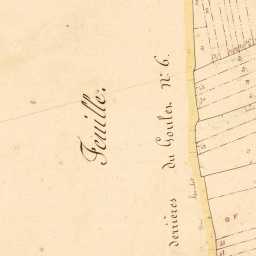 Feuille.
derrières du Goulet N° 6.